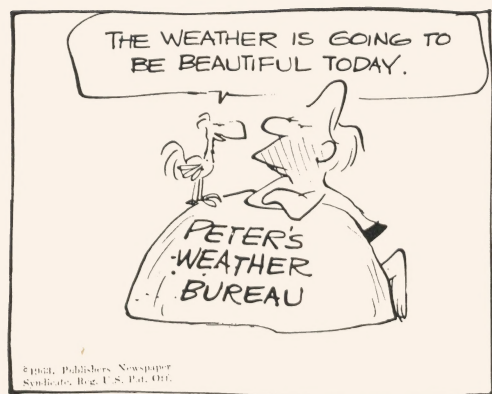 THE WEATHER IS GOING TO
BE BEAUTIFUL TODAY.
PETER'S
WEATHER
BUREAU
©1963, Publishers Newspaper
Syndicate, Reg. U.S. Pat. Off.